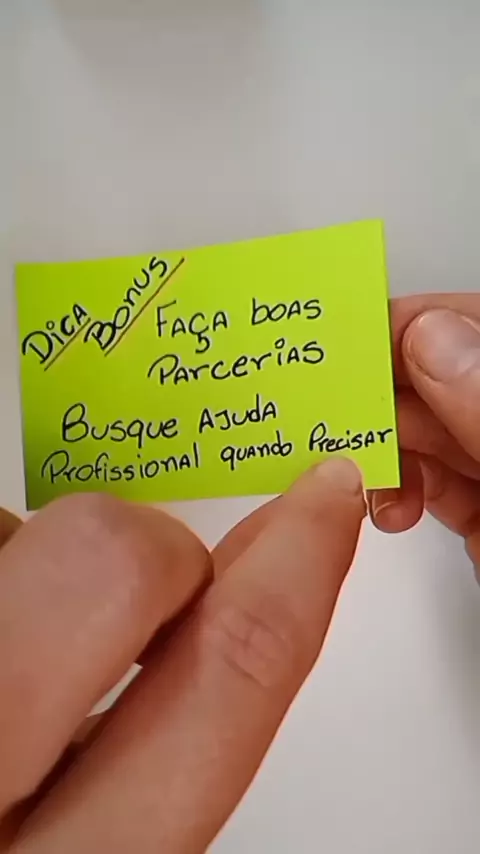 Dica
Bonus
Faça boas
Parcerias
Busque Ajuda
Profissional quando Precisar